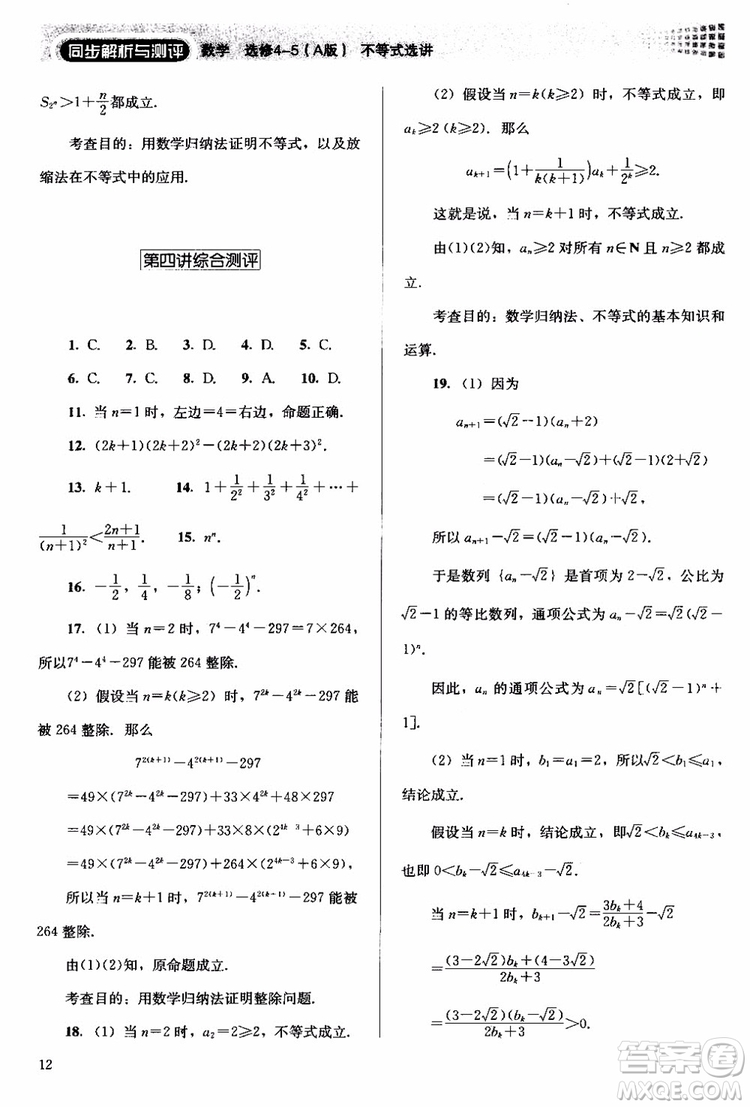 同步解析与测评 数学 选修4-5(A版) 不等式选讲
S₂ⁿ>1+n/2都成立.
考查目的:用数学归纳法证明不等式,以及放
缩法在不等式中的应用.
第四讲综合测评
1. C. 2. B. 3. D. 4. C. 5. D.
6. C. 7. D. 8. C. 9. A. 10. D.
11. 当n=1时,左边=4=右边,命题正确.
12. (2k+1)(2k+2)²-(2k+2)(2k+3)².
13. k+1. 14. 1+1/2²+1/3²+1/4²+…+
1/(n+1)²<(2n+1)/(n+1). 15. nⁿ.
16. -1/2, 1/4, -1/8; (-1/2)ⁿ.
17. (1) 当n=2时, 7⁴-4⁴-297=7×264,
所以7⁴-4⁴-297能被264整除.
(2) 假设当n=k(k≥2)时, 7²ᵏ-4²ᵏ-297能
被264整除. 那么
7²⁽ᵏ⁺¹⁾-4²⁽ᵏ⁺¹⁾-297
=49×(7²ᵏ-4²ᵏ-297)+33×4²ᵏ+48×297
=49×(7²ᵏ-4²ᵏ-297)+33×8×(2⁴ᵏ ³+6×9)
=49×(7²ᵏ-4²ᵏ-297)+264×(2⁴ᵏ⁻³+6×9)
所以当n=k+1时, 7²⁽ᵏ⁺¹⁾-4²⁽ᵏ⁺¹⁾-297能被
264整除.
由(1)(2)知,原命题成立.
考查目的:用数学归纳法证明整除问题.
18. (1) 当n=2时, a₂=2≥2, 不等式成立.
12
(2) 假设当n=k(k≥2)时,不等式成立,即
aₖ≥2(k≥2). 那么
aₖ₊₁=(1+1/(k(k+1)))aₖ+1/2ᵏ≥2.
这就是说,当n=k+1时,不等式成立.
由(1)(2)知, aₙ≥2对所有n∈N且n≥2都成
立.
考查目的:数学归纳法、不等式的基本知识和
运算.
19. (1) 因为
aₙ₊₁=(√2-1)(aₙ+2)
=(√2-1)(aₙ-√2)+(√2-1)(2+√2)
=(√2-1)(aₙ-√2)+√2,
所以aₙ₊₁-√2=(√2-1)(aₙ-√2).
于是数列{aₙ-√2}是首项为2-√2,公比为
√2-1的等比数列,通项公式为aₙ-√2=√2(√2-
1)ⁿ.
因此, aₙ的通项公式为aₙ=√2[(√2-1)ⁿ+
1].
(2) 当n=1时, b₁=a₁=2, 所以√2<b₁≤a₁,
结论成立.
假设当n=k时,结论成立,即√2<bₖ≤a₄ₖ₋₃,
也即0<bₖ-√2≤a₄ₖ₋₃-√2.
当n=k+1时, bₖ₊₁-√2=(3bₖ+4)/(2bₖ+3)-√2
=((3-2√2)bₖ+(4-3√2))/(2bₖ+3)
=((3-2√2)(bₖ-√2))/(2bₖ+3)>0.
答案圈
MXQE.COM